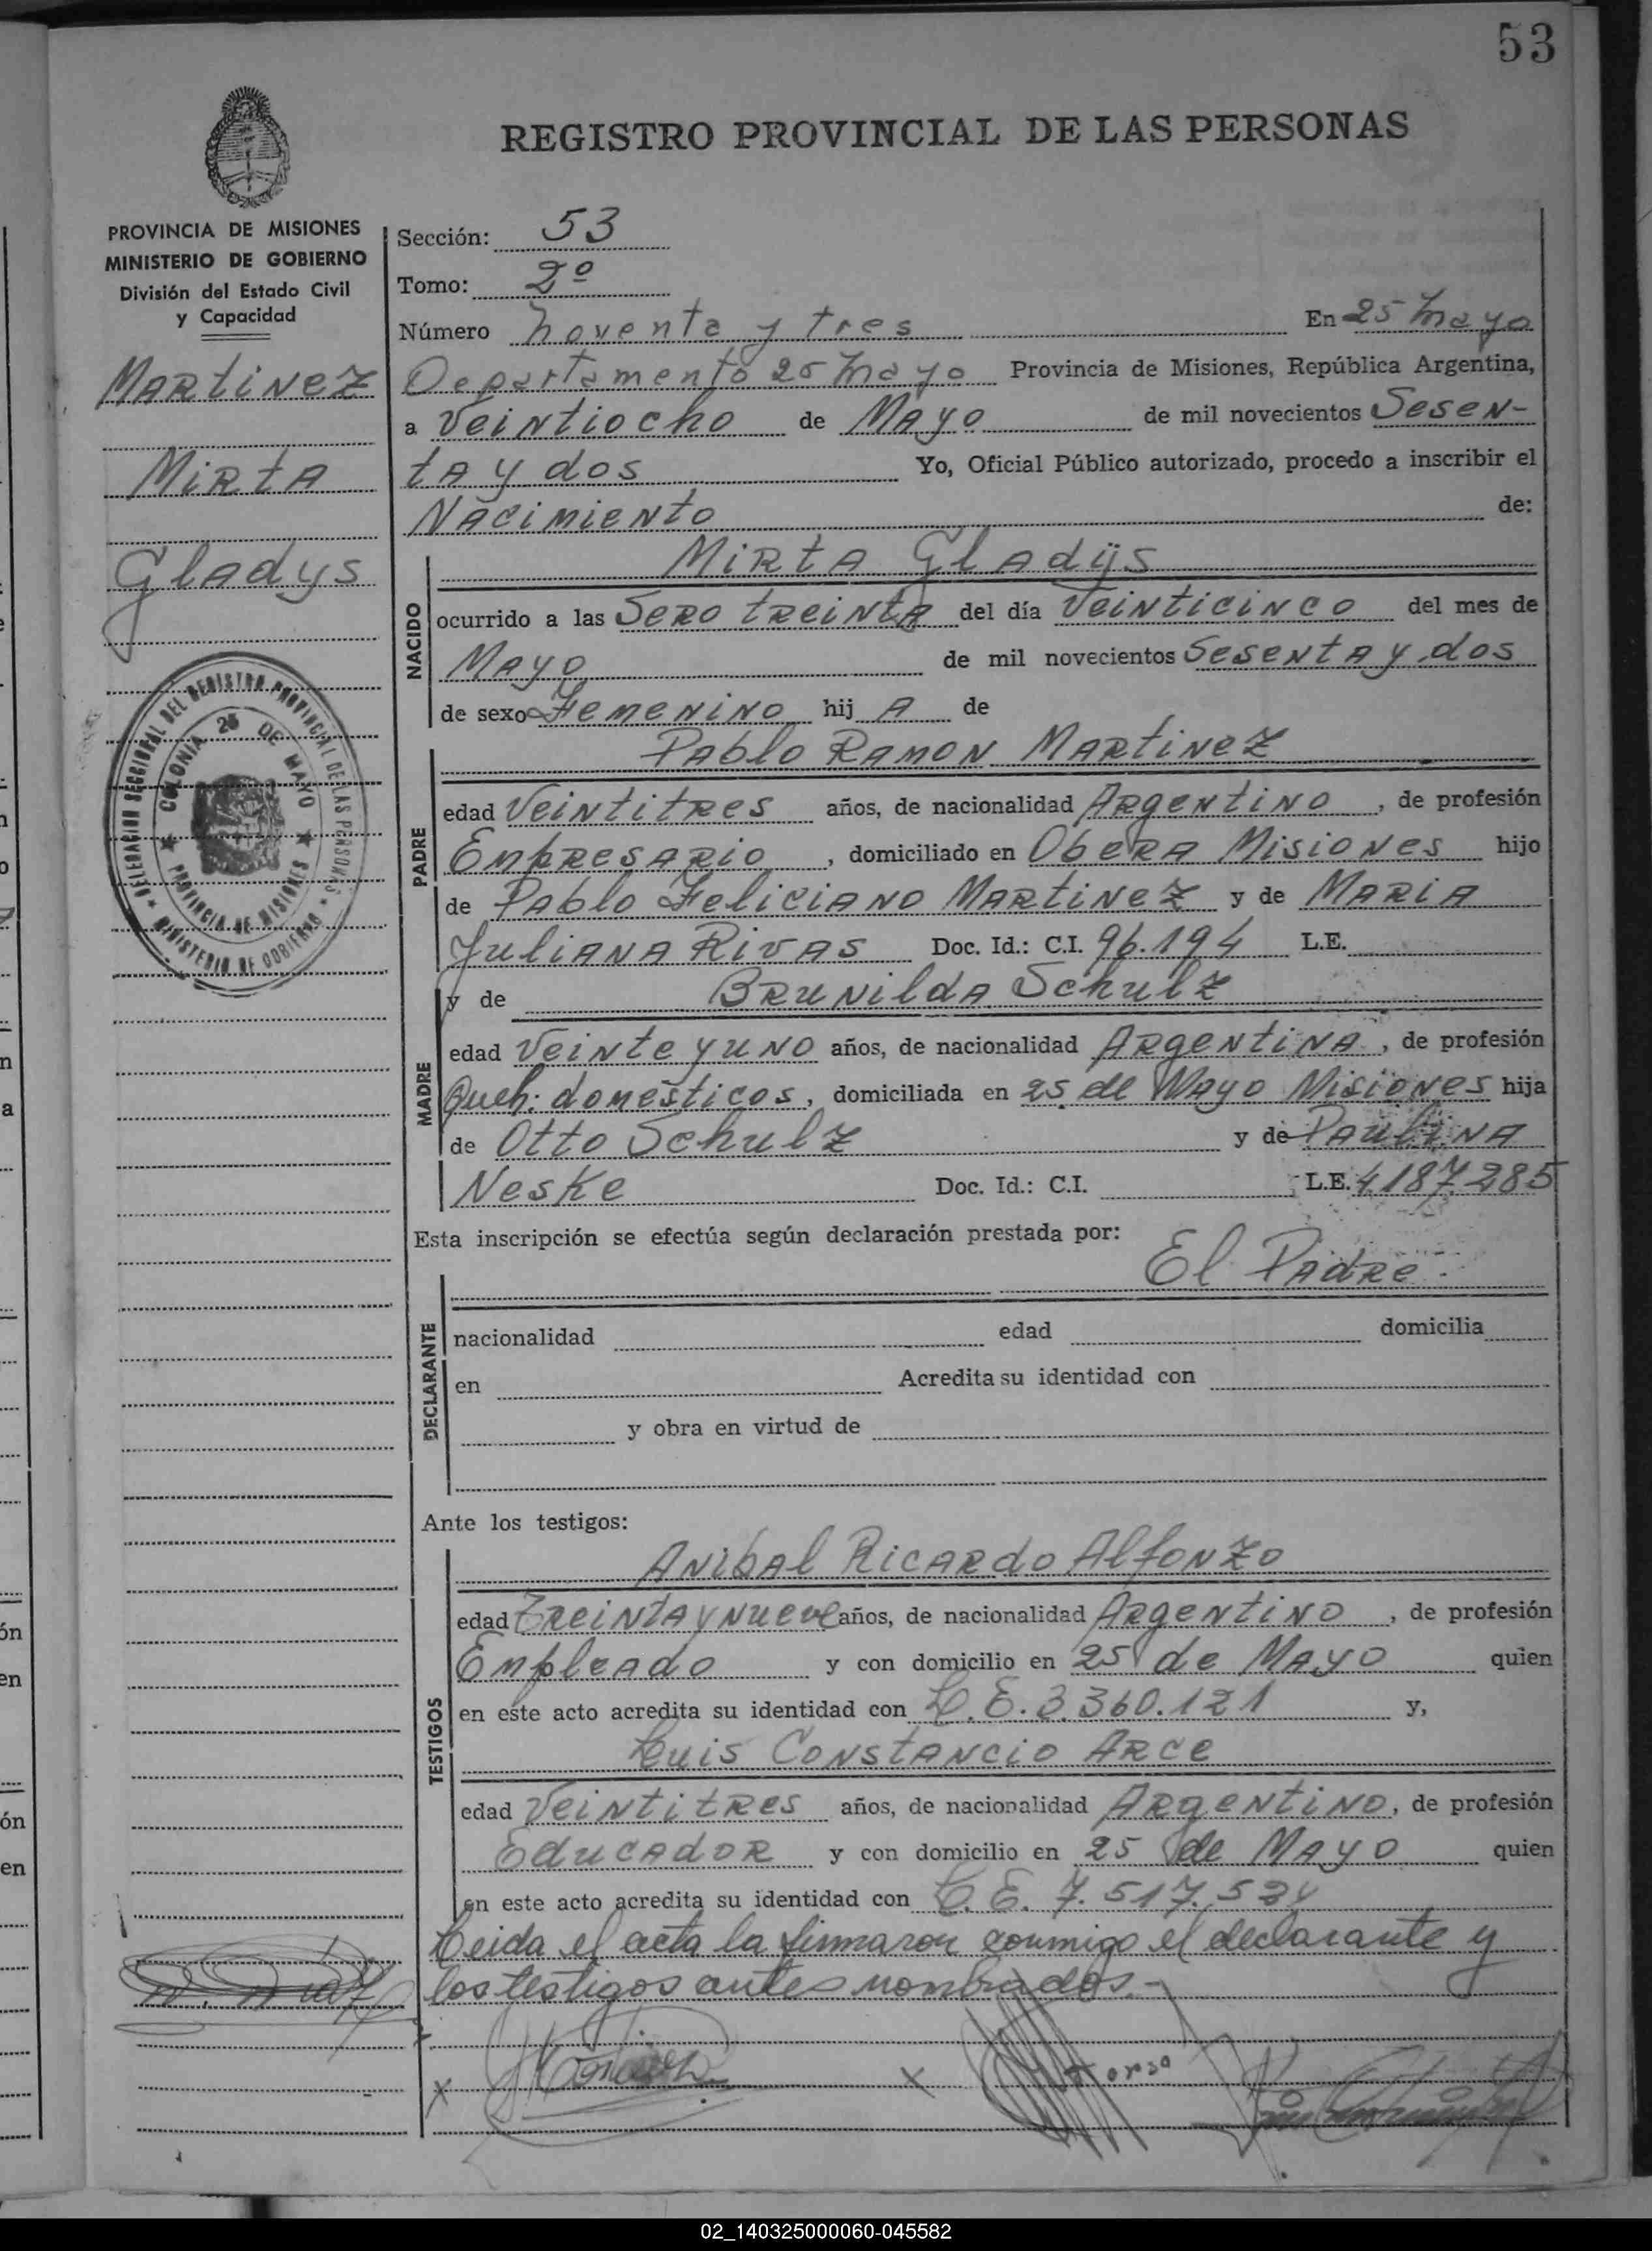 53
REGISTRO PROVINCIAL DE LAS PERSONAS
PROVINCIA DE MISIONES
MINISTERIO DE GOBIERNO
División del Estado Civil
y Capacidad
MARtiNeZ
MiRtA
GlAdys
DELEGACION SECCIONAL DEL REGISTRO PROVINCIAL DE LAS PERSONAS
MINISTERIO DE GOBIERNO
COLONIA 25 DE MAYO
PROVINCIA DE MISIONES
Sección: 53
Tomo: 2º
Número Noventa y tres En 25 Mayo
Departamento 25 Mayo Provincia de Misiones, República Argentina,
a Veintiocho de Mayo de mil novecientos Sesen-
ta y dos Yo, Oficial Público autorizado, procedo a inscribir el
Nacimiento de:
NACIDO
Mirta Gladijs
ocurrido a las Sero treinta del día Veinticinco del mes de
Mayo de mil novecientos Sesenta y dos
de sexo Femenino hij A de
PADRE
Pablo Ramon Martinez
edad Veintitres años, de nacionalidad Argentino, de profesión
Enpresario, domiciliado en Obera Misiones hijo
de Pablo Feliciano Martinez y de Maria
Juliana Rivas Doc. Id.: C.I. 96.194 L.E.
MADRE
y de Brunilda Schulz
edad Veinte y uno años, de nacionalidad Argentina, de profesión
Queh: domésticos, domiciliada en 25 de Mayo Misiones hija
de Otto Schulz y de Paulina
Neske Doc. Id.: C.I. L.E. 4.187.285
Esta inscripción se efectúa según declaración prestada por:
El Padre.-
DECLARANTE
nacionalidad edad domicilia
en Acredita su identidad con
y obra en virtud de
Ante los testigos:
TESTIGOS
Anibal Ricardo Alfonzo
edad Treinta y nueve años, de nacionalidad Argentino, de profesión
Empleado y con domicilio en 25 de Mayo quien
en este acto acredita su identidad con L.E. 3.360.121 y,
Luis Constancio Arce
edad Veintitres años, de nacionalidad Argentino, de profesión
Educador y con domicilio en 25 de Mayo quien
en este acto acredita su identidad con L.E. 7.517.534
Leida el acta la firmaron conmigo el declarante y
los testigos antes nombrados.-
02_140325000060-045582